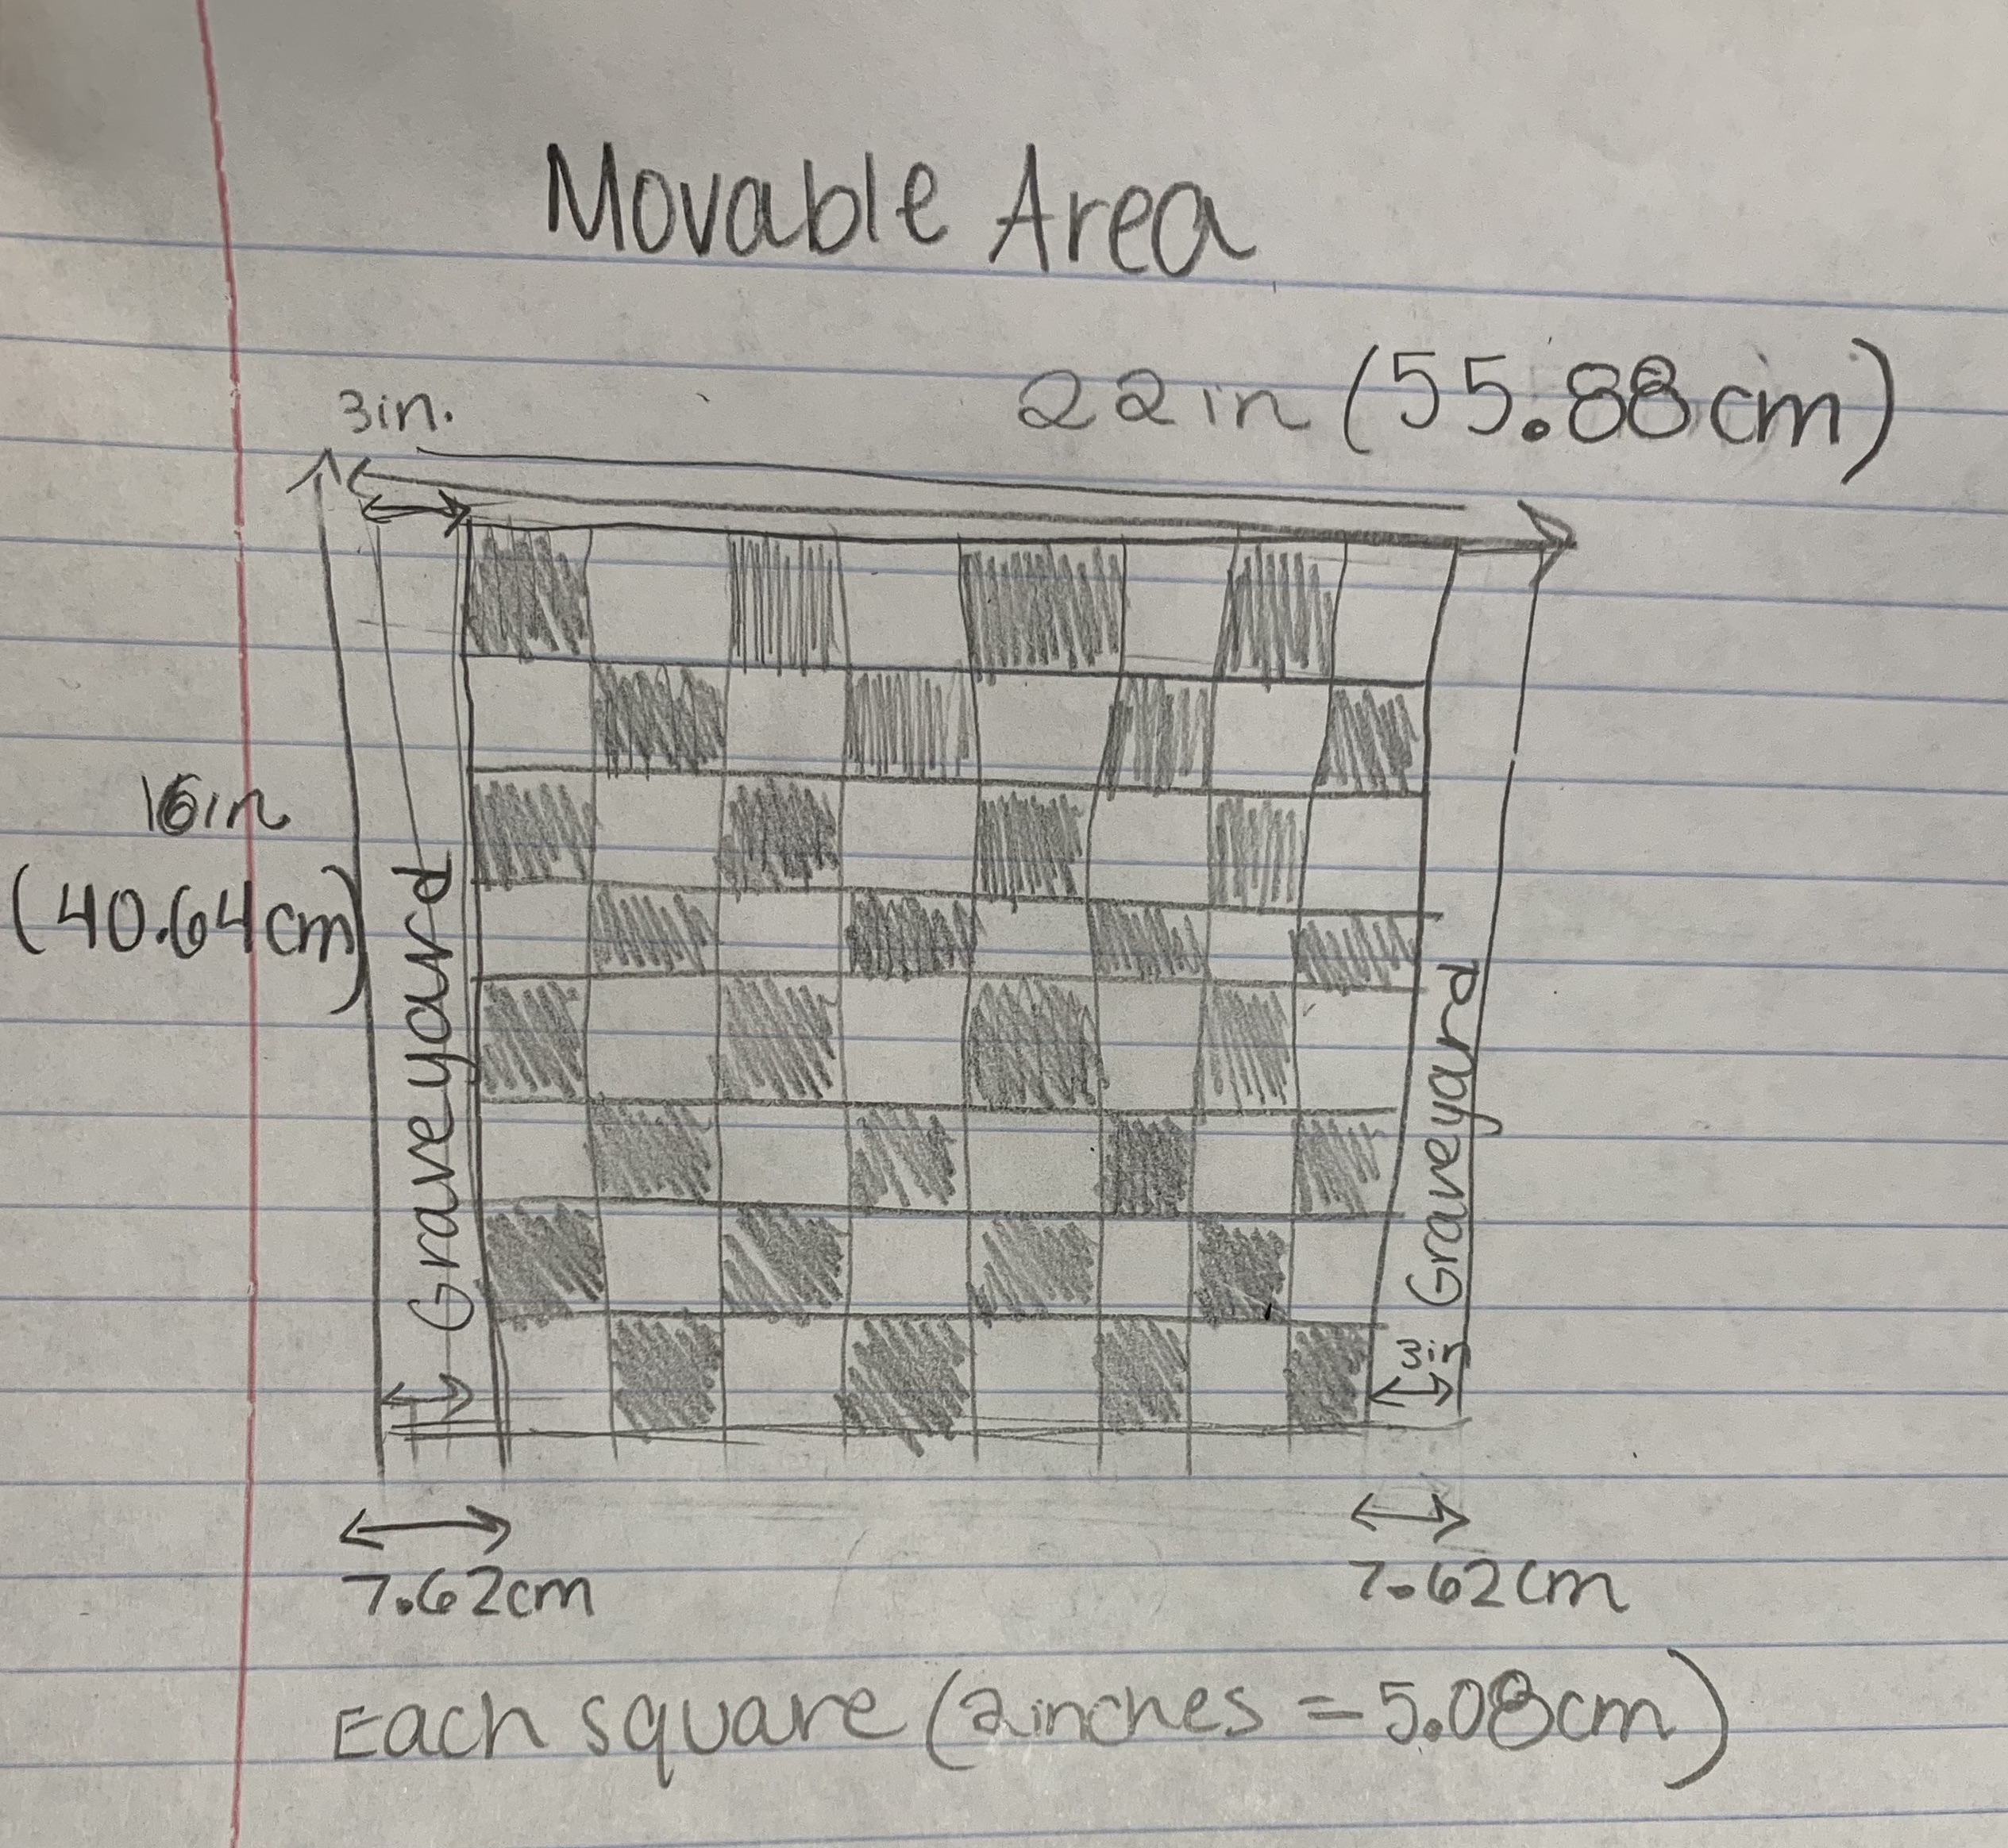 Movable Area
22in (55.88cm)
3in.
16in
(40.64cm)
Graveyard
Graveyard
3in
7.62cm
7.62cm
Each square (2inches = 5.08cm)